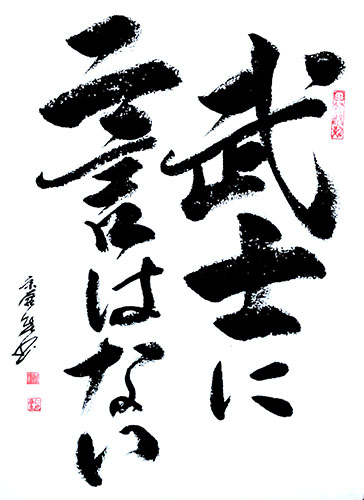 武士に
二言はない